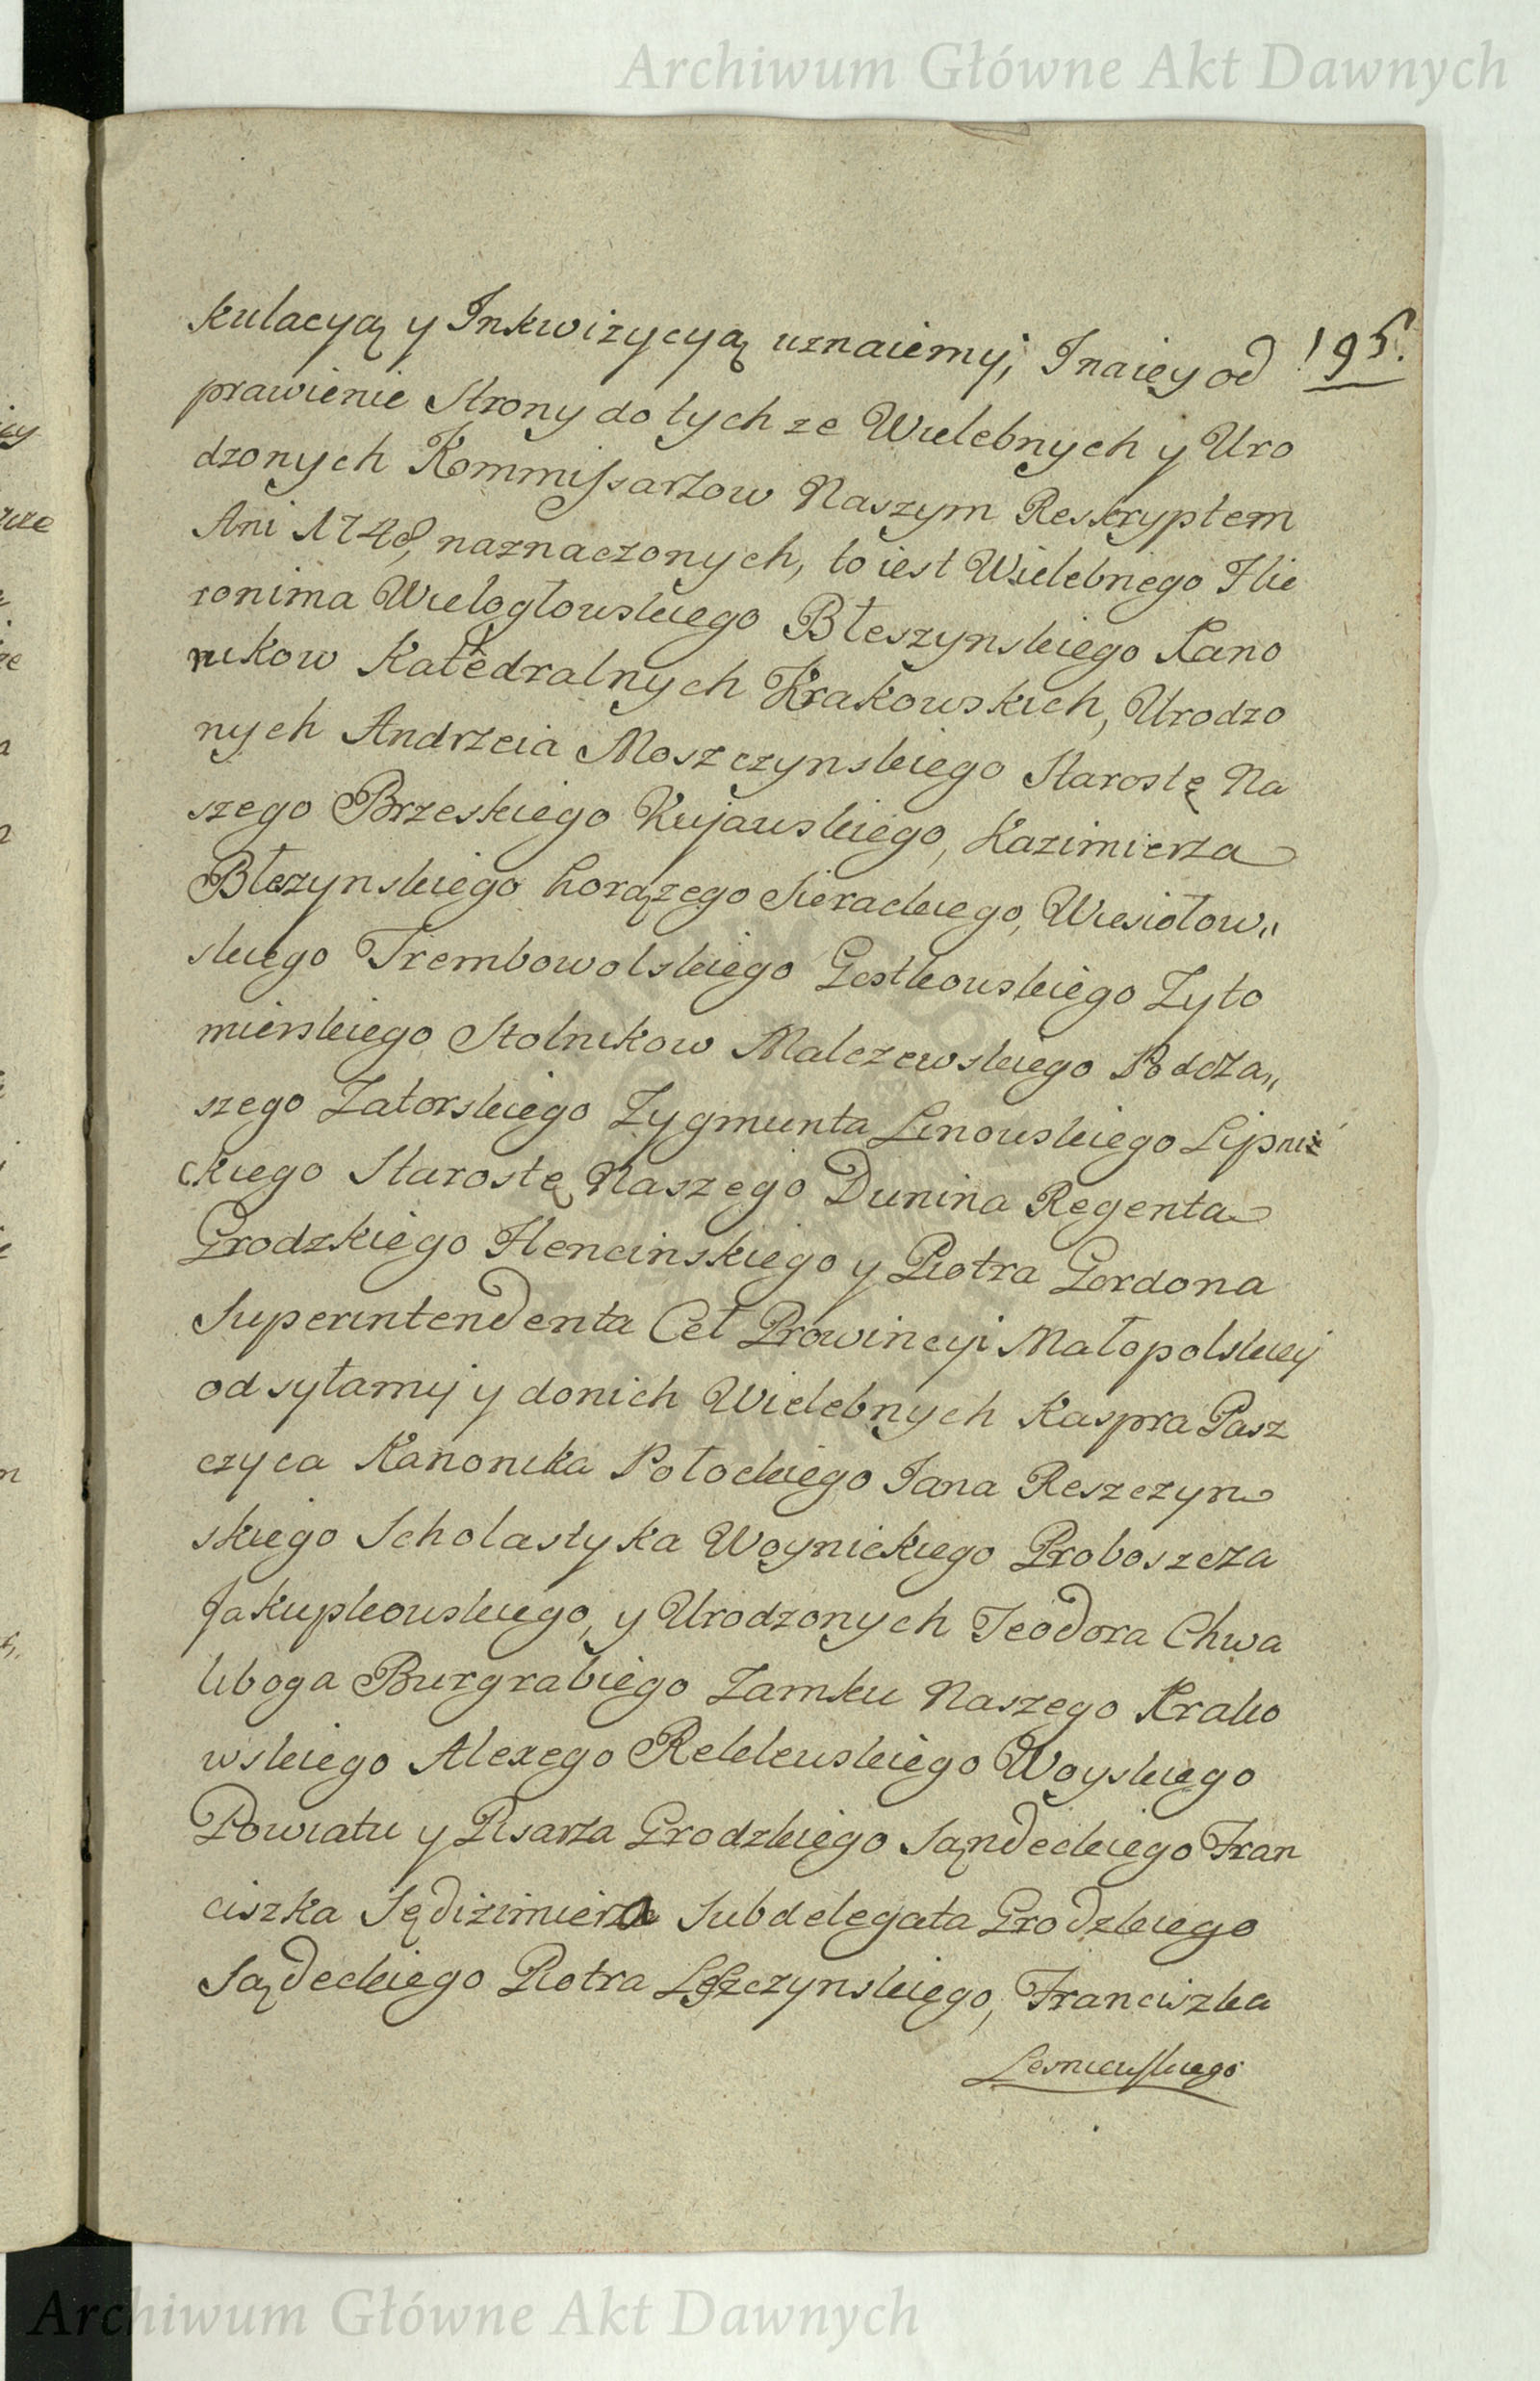 Archiwum Główne Akt Dawnych
195.
kulacyą y Inkwizycyą uznaiemy; Inaiey od
prawienie Strony do tych ze Wielebnych y Uro
dzonych Kommissarzow Naszym Reskryptem
Ani 1748, naznaczonych, to iest Wielebnego Hie
ronima Wielogłowskiego Błeszynskiego Kano
nikow Katedralnych Krakowskich, Urodzo
nych Andrzeia Moszczynskiego Starostę Na
szego Brzeskiego Kujawskiego, Kazimierza
Błezynskiego horązego Sieradkiego, Wiesiołow„
skiego Trembowolskiego Gostkowskiego Zyto
mierskiego Stolnikow Malczewskiego Podcza„
szego Zatorskiego Zygmunta Linowskiego Lipni
ckiego Starostę Naszego Dunina Regenta
Grodzkiego Hencinskiego y Piotra Gordona
Superintendenta Ceł Prowincyi Małopolskiey
odsyłamy y donich Wielebnych Kaspra Pasz
czyca Kanonika Połockiego Jana Reszczyn
skiego Scholastyka Woynickiego Proboszcza
Jakupkowskiego, y Urodzonych Teodora Chwa
liboga Burgrabiego Zamku Naszego Krako
wskiego Alexego Reklewskiego Woyskiego
Powiatu y Pisarza Grodzkiego Sąndeckiego Fran
ciszka Sędizimiera Subdelegata Grodzkiego
Sądeckiego Piotra Leszczynskiego, Franciszka
Lesniewskiego
Archiwum Główne Akt Dawnych